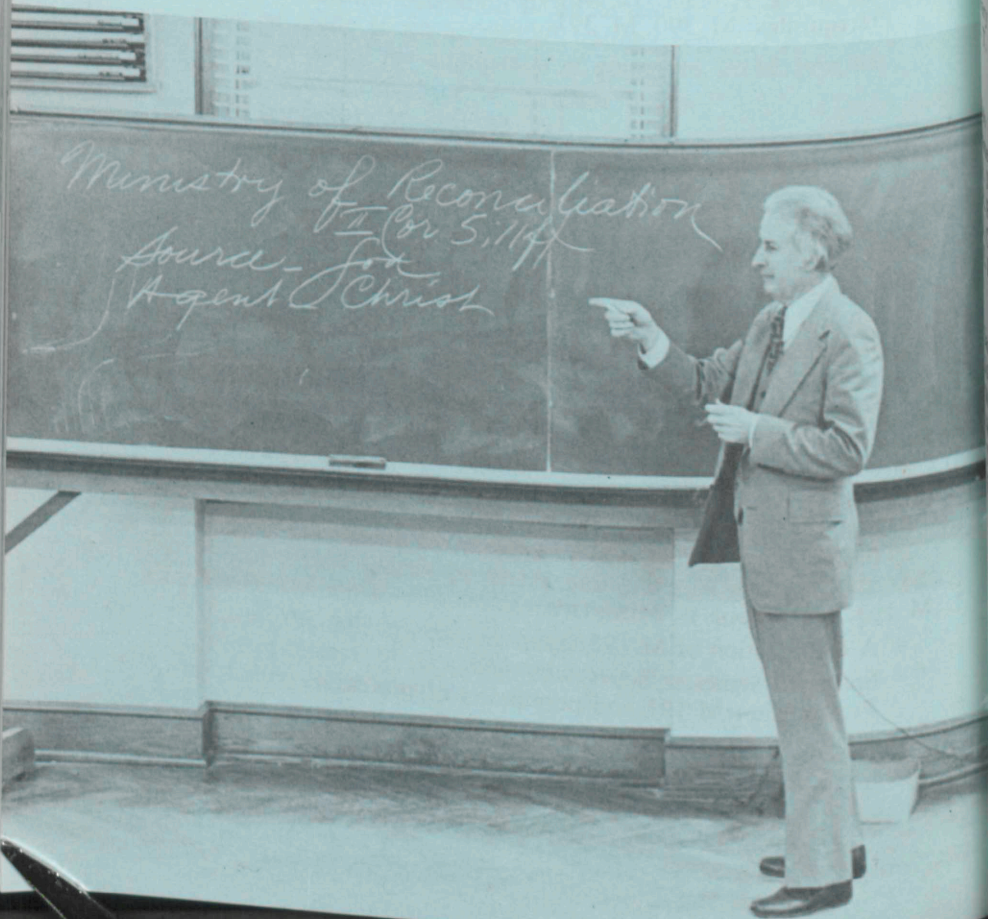 Ministry of Reconciliation
II Cor. 5:11ff
Source - God
Agent - Christ